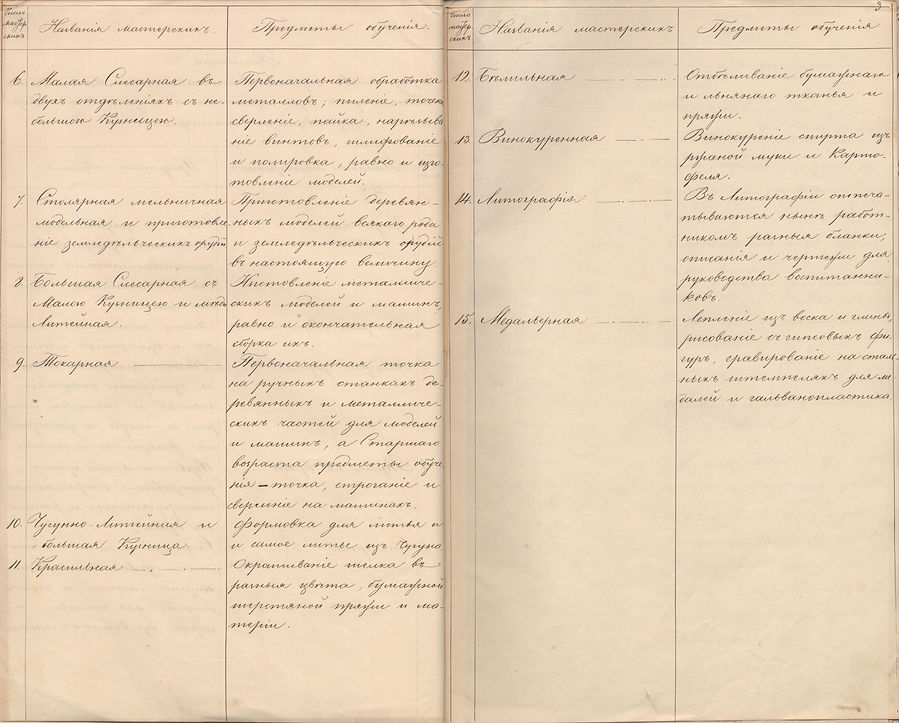 Число мастерскихъ
Названія мастерскихъ.
Предметы обученія.
6. Малая Слесарная въ
двухъ отдѣленіяхъ съ не-
большою Кузницею.
Первоначальная обработка
металловъ; пиленіе, точка
сверленіе, пайка, нарѣзыва
ніе винтовъ, шлифованіе
и полировка, равно и изго
товленіе моделей.
7. Столярная мельничная
модельная и приготовле
ніе земледѣльческихъ орудій
Приготовленіе деревян-
ныхъ моделей всякаго рода
и земледѣльческихъ орудій
въ настоящую величину.
8. Большая Слесарная съ
Малою Кузницею и мѣдно
Литейная.
Изготовленіе металличе-
скихъ моделей и машинъ,
равно и окончательная
сборка ихъ.
9. Токарная
Первоначальная точка
на ручныхъ станкахъ де
ревянныхъ и металличе-
скихъ частей для моделей
и машинъ, а Старшаго
возраста предметы обуче
нія – точка, строганіе и
сверленіе на машинахъ.
10. Чугунно-Литейная и
большая Кузница.
Формовка для литья и
и самое литье изъ Чугуна
11. Красильная
Окрашиваніе шелка въ
разные цвѣта, бумажной
шерстяной пряжи и ма-
теріи.
3
Число мастерскихъ
Названія мастерскихъ
Предметы обученія
12. Бѣлильная
Отбѣливаніе бумажнаго
и льнянаго тканья и
пряжи.
13. Винокуренная
Винокуреніе спирта изъ
ржаной муки и Карто-
феля.
14. Литографія
Въ Литографіи отпеча-
тываются нынѣ работ-
никомъ разныя бланки,
описанія и чертежи для
руководства воспитанни-
ковъ.
15. Медальерная
Лепленіе изъ воска и глины,
рисованіе съ гипсовыхъ фи-
гуръ, гравированіе на сталь
ныхъ штемпеляхъ для ме
далей и гальванопластика